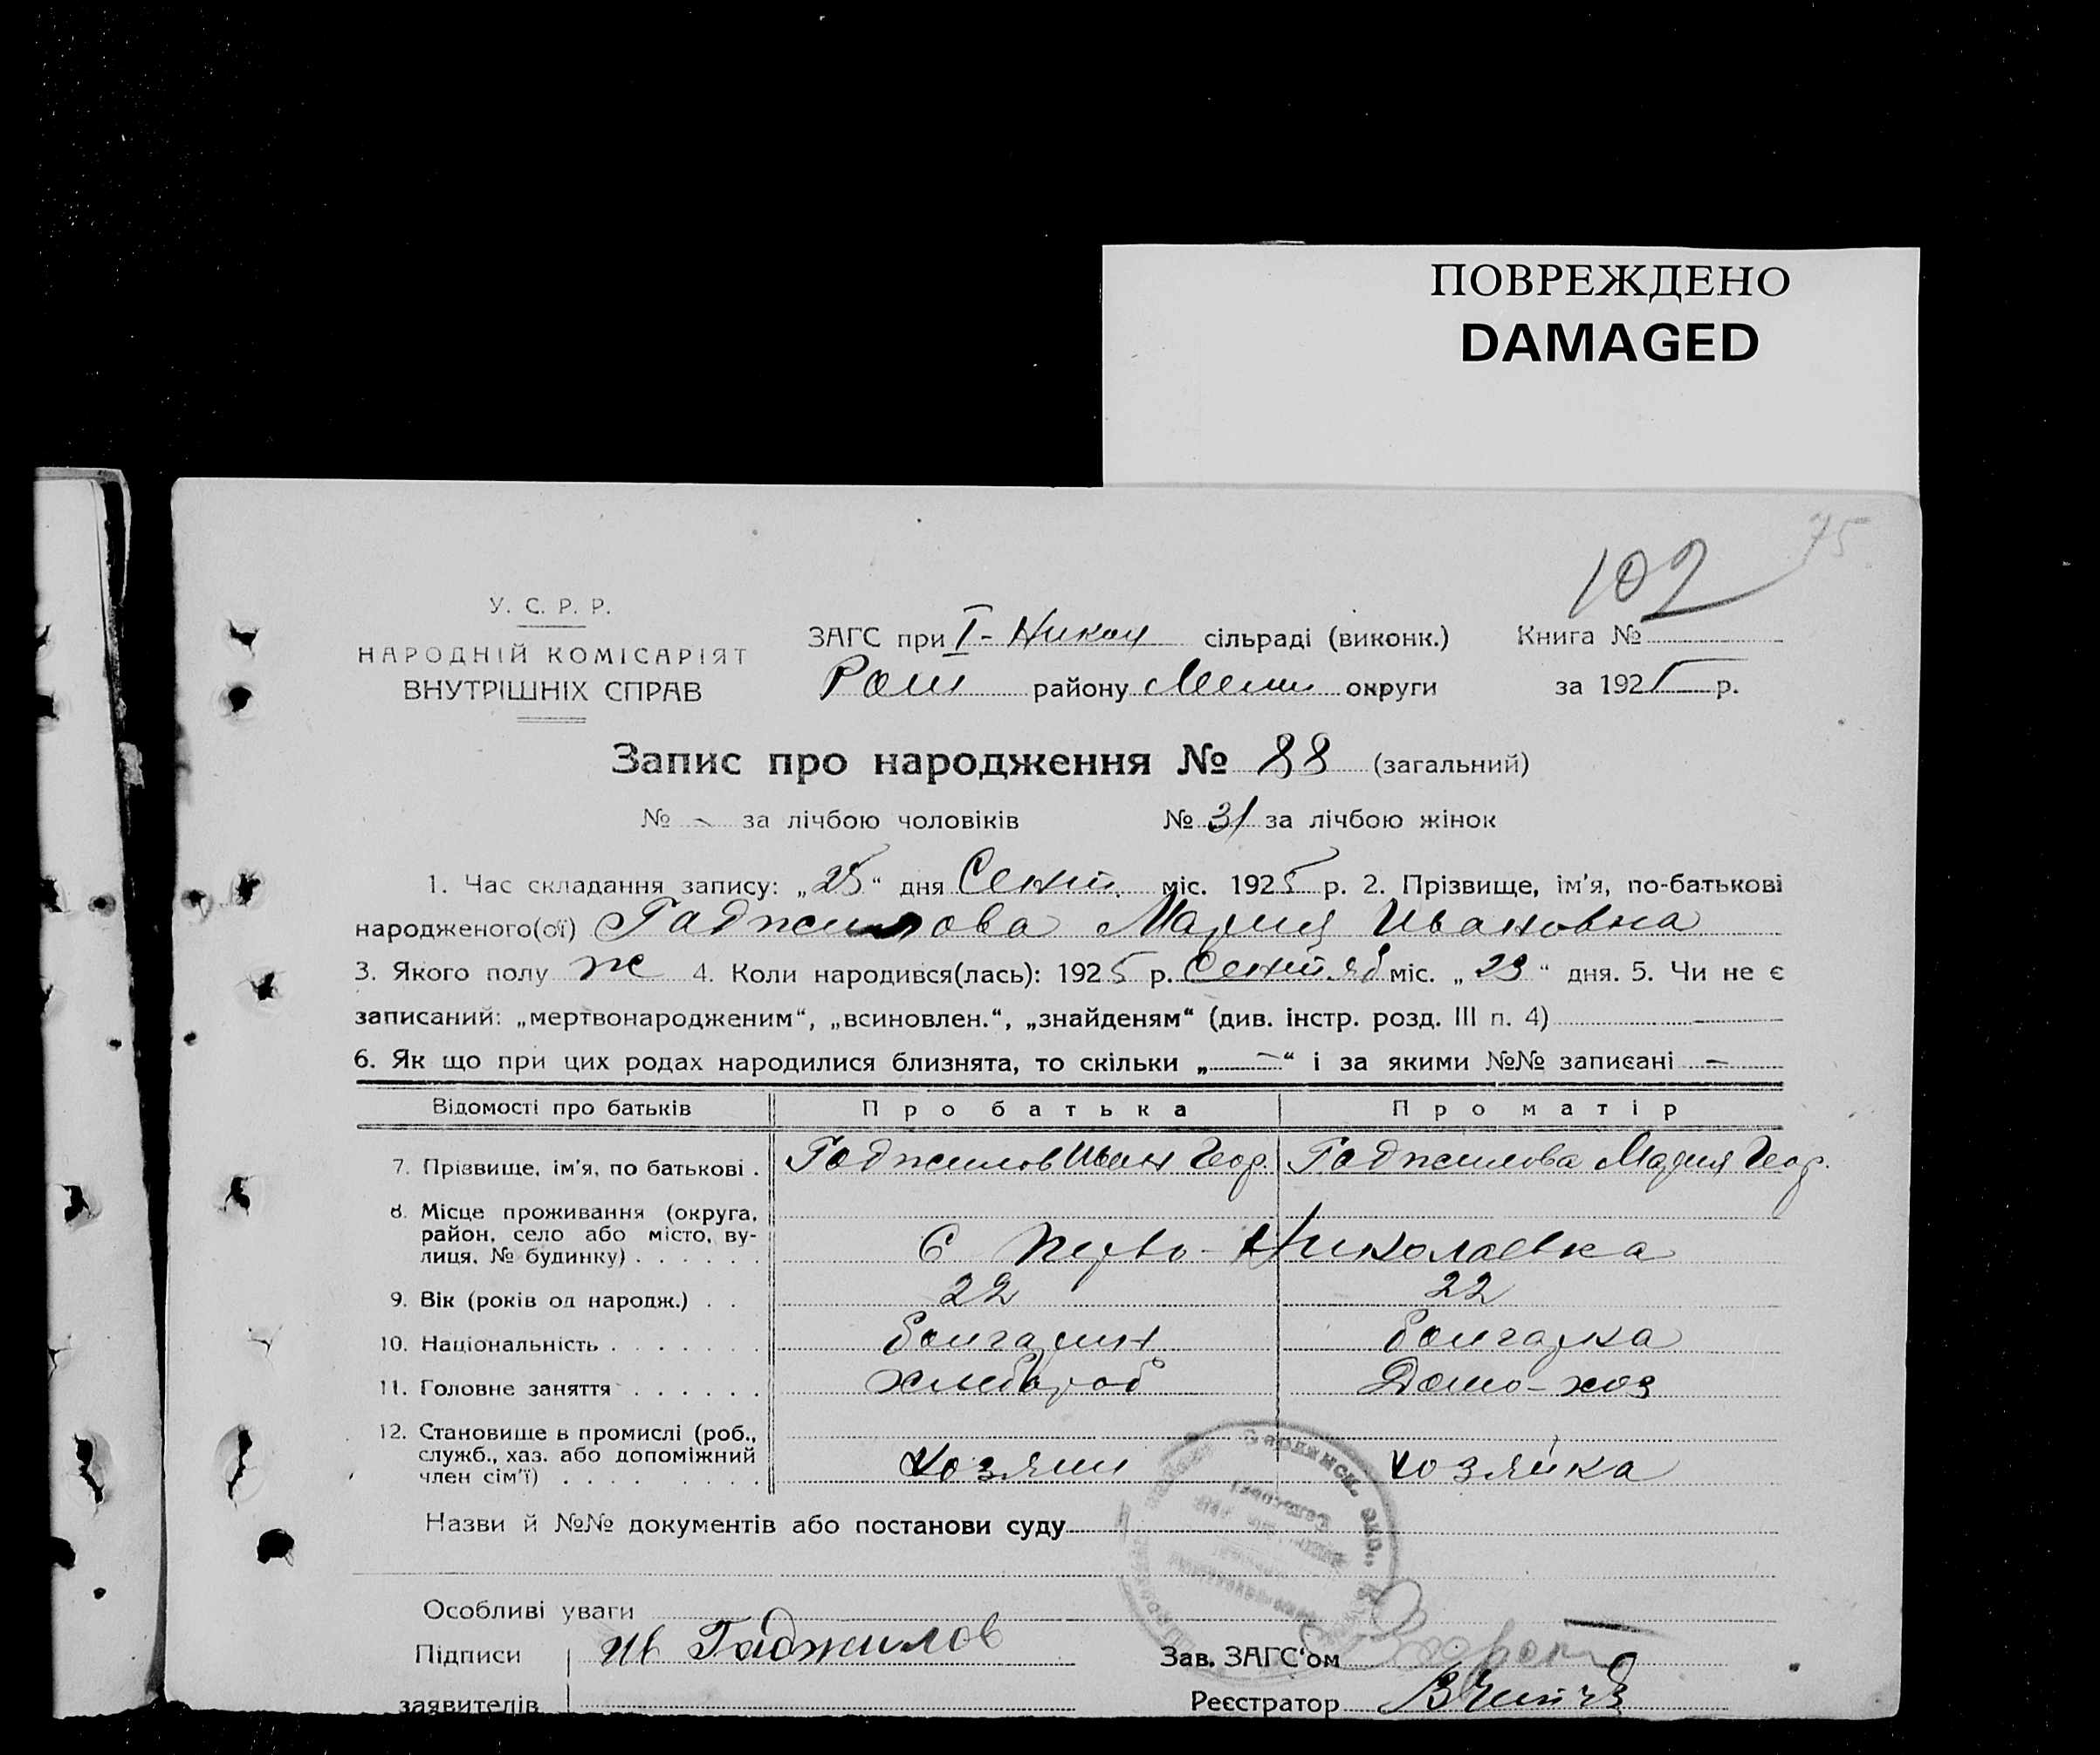 ПОВРЕЖДЕНО
DAMAGED
75
102
У. С. Р. Р.
НАРОДНІЙ КОМІСАРІЯТ
ВНУТРІШНІХ СПРАВ
ЗАГС при I - Никол сільраді (виконк.) Книга №
Ром району Мели округи за 1925 р.
Запис про народження № 88 (загальний)
№ - за лічбою чоловіків № 31 за лічбою жінок
1. Час складання запису: „25“ дня Сент. міс. 1925 р. 2. Прізвище, ім'я, по-батькові
народженого(ої) Гаджилова Мария Ивановна
3. Якого полу ж 4. Коли народився(лась): 1925 р. Сентяб міс. „23“ дня. 5. Чи не є
записаний: „мертвонародженим“, „всиновлен.“, „знайденям“ (див. інстр. розд. III п. 4)
6. Як що при цих родах народилися близнята, то скільки „—“ і за якими №№ записані —
Відомості про батьків Про батька Про матір
7. Прізвище, ім'я, по батькові . Гаджилов Иван Геор. Гаджилова Мария Геор.
8. Місце проживання (округа,
район, село або місто, ву-
лиця, № будинку) . . . . . . С Перво-Николаевка
9. Вік (років од народж.) . . 22 22
10. Національність . . . . . . . болгарин болгарка
11. Головне заняття . . . . . . хлебороб Домо-хоз
12. Становище в промислі (роб.,
служб., хаз. або допоміжний
член сім'ї) . . . . . . . . хозяин хозяйка
Назви й №№ документів або постанови суду
Особливі уваги
Підписи Ив Гаджилов Зав. ЗАГС'ом
заявителів Реєстратор